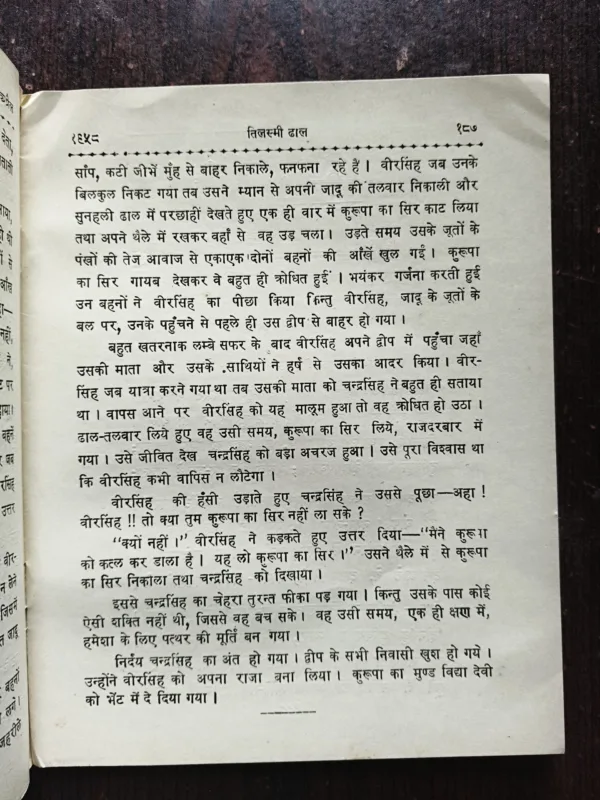 १९५८ तिलस्मी ढाल १८७
साँप, कटी जीभें मुँह से बाहर निकाले, फनफना रहे हैं । वीरसिंह जब उनके
बिलकुल निकट गया तब उसने म्यान से अपनी जादू की तलवार निकाली और
सुनहली ढाल में परछाहीं देखते हुए एक ही वार में कुरूपा का सिर काट लिया
तथा अपने थैले में रखकर वहाँ से वह उड़ चला । उड़ते समय उसके जूतों के
पंखों की तेज आवाज से एकाएक दोनों बहनों की आँखें खुल गईं । कुरूपा
का सिर गायब देखकर वे बहुत ही क्रोधित हुईं । भयंकर गर्जना करती हुई
उन बहनों ने वीरसिंह का पीछा किया किन्तु वीरसिंह, जादू के जूतों के
बल पर, उनके पहुँचने से पहले ही उस द्वीप से बाहर हो गया ।
बहुत खतरनाक लम्बे सफर के बाद वीरसिंह अपने द्वीप में पहुँचा जहाँ
उसकी माता और उसके साथियों ने हर्ष से उसका आदर किया । वीर-
सिंह जब यात्रा करने गया था तब उसकी माता को चन्द्रसिंह ने बहुत ही सताया
था । वापस आने पर वीरसिंह को यह मालूम हुआ तो वह क्रोधित हो उठा ।
ढाल-तलवार लिये हुए वह उसी समय, कुरूपा का सिर लिये, राजदरबार में
गया । उसे जीवित देख चन्द्रसिंह को बड़ा अचरज हुआ । उसे पूरा विश्वास था
कि वीरसिंह कभी वापिस न लौटेगा ।
वीरसिंह की हँसी उड़ाते हुए चन्द्रसिंह ने उससे पूछा—अहा !
वीरसिंह !! तो क्या तुम कुरूपा का सिर नहीं ला सके ?
“क्यों नहीं ।” वीरसिंह ने कड़कते हुए उत्तर दिया—“मैंने कुरूपा
को कत्ल कर डाला है । यह लो कुरूपा का सिर ।” उसने थैले में से कुरूपा
का सिर निकाला तथा चन्द्रसिंह को दिखाया ।
इससे चन्द्रसिंह का चेहरा तुरन्त फीका पड़ गया । किन्तु उसके पास कोई
ऐसी शक्ति नहीं थी, जिससे वह बच सके । वह उसी समय, एक ही क्षण में,
हमेशा के लिए पत्थर की मूर्ति बन गया ।
निर्दय चन्द्रसिंह का अंत हो गया । द्वीप के सभी निवासी खुश हो गये ।
उन्होंने वीरसिंह को अपना राजा बना लिया । कुरूपा का मुण्ड विद्या देवी
को भेंट में दे दिया गया ।